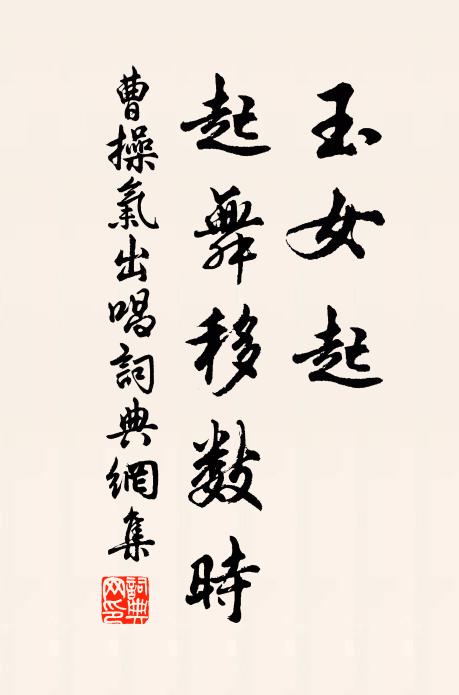 玉女起
起舞移数時
曹操氣出唱詞典網集
詞典網印